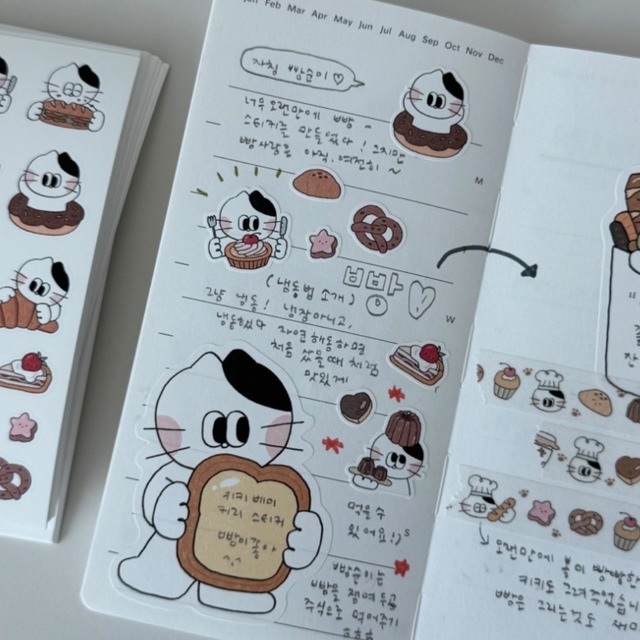 Jan Feb Mar Apr May Jun Jul Aug Sep Oct Nov Dec
자칭 빵순이♡
너무 오랜만에 빵
스티커를 만들었다! 그치만
빵사랑은 아직, 여전히~
M
(냉동법 소개)
빵빵♡
W
그냥 냉동! 냉장아니고,
냉동했다 자연해동하면
처음 샀을때 처럼
맛있게
먹을수
있어요!)
S
키키 베이
커리 스티커
빵이좋아
^.^
빵순이는
빵을 쟁여두곤
주식으로 먹어주기
호호호
오랜만에
키키도 그려주었습
빵을 그리는것도